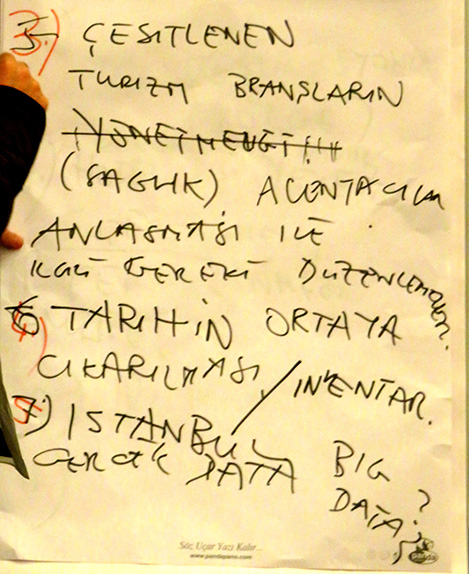 3.) ÇEŞİTLENEN
TURİZM BRANŞLARIN
YÖNETMELİĞİ
(SAĞLIK) ACENTACILIK
ANLAŞMASI İLE
İLGİLİ GEREKLİ DÜZENLEMELER.
4) TARİHİN ORTAYA
ÇIKARILMASI / İNVENTAR.
5) İSTANBUL BIG
GERÇEK DATA DATA?
Söz Uçar Yazı Kalır...
www.pandapano.com